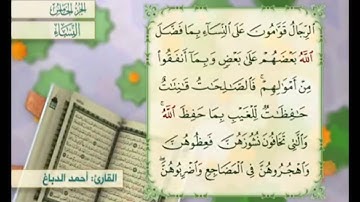 الجزء الخامس
النساء
الرِّجَالُ قَوَّامُونَ عَلَى النِّسَاءِ بِمَا فَضَّلَ
اللَّهُ بَعْضَهُمْ عَلَىٰ بَعْضٍ وَبِمَا أَنفَقُوا
مِنْ أَمْوَالِهِمْ ۚ فَالصَّالِحَاتُ قَانِتَاتٌ
حَافِظَاتٌ لِّلْغَيْبِ بِمَا حَفِظَ اللَّهُ ۚ
وَاللَّاتِي تَخَافُونَ نُشُوزَهُنَّ فَعِظُوهُنَّ
وَاهْجُرُوهُنَّ فِي الْمَضَاجِعِ وَاضْرِبُوهُنَّ ۖ
القارئ: أحمد الدباغ